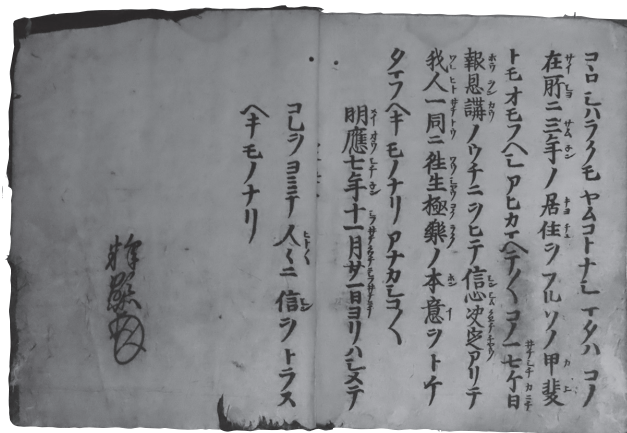 コヽロシハラクモヤムコトナシイタハコノ
在所ニ三年ノ居住ヲフルソノ甲斐
トモオモフヘシアヒカマヘテ〱コノ一七ケ日
報恩講ノウチニヲヒテ信心决定アリテ
我人一同ニ往生極樂ノ本意ヲトケ
タマフヘキモノナリアナカシコ〱
明應七年十一月廿一日ヨリハシメテ
コレヲヨミテ人〱ニ信ヲトラス
ヘキモノナリ